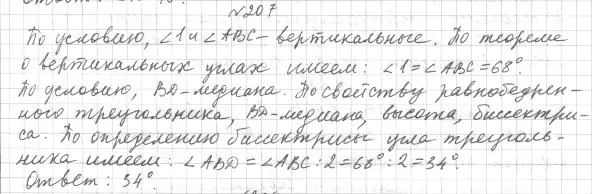 №207
По условию, ∠1 и ∠ABC - вертикальные. По теореме
о вертикальных углах имеем: ∠1=∠ABC=68°.
По условию, BD-медиана. По свойству равнобедрен-
ного треугольника, BD-медиана, высота, биссектри-
са. По определению биссектрисы угла треуголь-
ника имеем: ∠ABD=∠ABC:2=68°:2=34°.
Ответ: 34°.